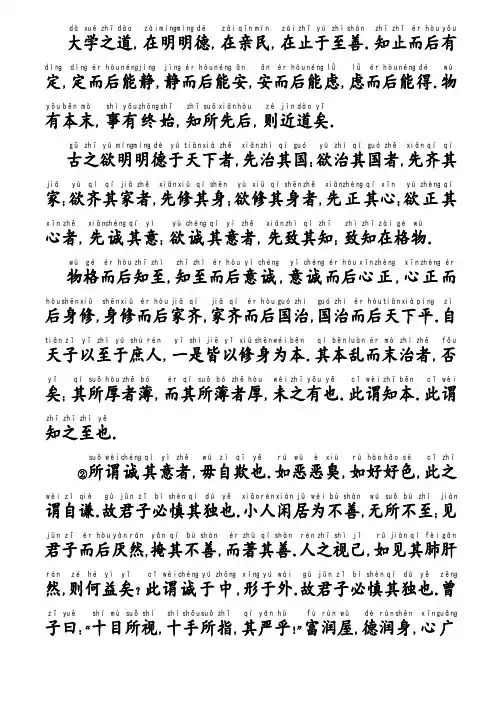 dà xué zhī dào zài míngmíng dé zài qīn mín zài zhǐ yú zhì shàn zhī zhǐ ér hòu yǒu
大学之道,在明明德,在亲民,在止于至善.知止而后有
dìng dìng ér hòunéngjìng jìng ér hòunéng ān ān ér hòunéng lǜ lǜ ér hòunéng dé wù
定,定而后能静,静而后能安,安而后能虑,虑而后能得.物
yǒu běn mò shì yǒuzhōngshǐ zhī suǒ xiānhòu zé jìn dào yǐ
有本末,事有终始,知所先后,则近道矣.
gǔ zhī yù míngmíng dé yú tiānxià zhě xiānzhì qí guó yù zhì qí guó zhě xiān qí qí
古之欲明明德于天下者,先治其国;欲治其国者,先齐其
jiā yù qí qí jiā zhě xiānxiū qí shēn yù xiū qí shēnzhě xiānzhèng qí xīn yù zhèng qí
家;欲齐其家者,先修其身;欲修其身者,先正其心;欲正其
xīn zhě xiānchéng qí yì yù chéng qí yì zhě xiānzhì qí zhī zhì zhī zài gé wù
心者,先诚其意;欲诚其意者,先致其知;致知在格物.
wù gé ér hòu zhī zhì zhī zhì ér hòu yì chéng yì chéng ér hòu xīnzhèng xīnzhèng ér
物格而后知至,知至而后意诚,意诚而后心正,心正而
hòushēnxiū shēnxiū ér hòu jiā qí jiā qí ér hòu guó zhì guó zhì ér hòutiānxià píng zì
后身修,身修而后家齐,家齐而后国治,国治而后天下平.自
tiān zǐ yǐ zhì yú shù rén yī shì jiē yǐ xiū shēnwéi běn qí běnluàn ér mò zhì zhě fǒu
天子以至于庶人,一是皆以修身为本.其本乱而末治者,否
yǐ qí suǒ hòu zhě bó ér qí suǒ bó zhě hòu wèi zhī yǒu yě cǐ wèi zhī běn cǐ wèi
矣;其所厚者薄,而其所薄者厚,未之有也.此谓知本.此谓
zhī zhī zhì yě
知之至也.
suǒ wèichéng qí yì zhě wú zì qī yě rú wù è xiù rú hào hǎo sè cǐ zhī
②所谓诚其意者,毋自欺也.如恶恶臭,如好好色,此之
wèi zì qiè gù jūn zǐ bì shèn qí dú yě xiǎorénxián jū wéi bù shàn wú suǒ bù zhì jiàn
谓自谦.故君子必慎其独也.小人闲居为不善,无所不至;见
jūn zǐ ér hòu yàn rán yǎn qí bù shàn ér zhù qí shàn rén zhī shì jǐ rú jiàn qí fèi gān
君子而后厌然,掩其不善,而著其善.人之视己,如见其肺肝
rán zé hé yì yǐ cǐ wèichéng yú zhōng xíng yú wài gù jūn zǐ bì shèn qí dú yě zēng
然,则何益矣?此谓诚于中,形于外.故君子必慎其独也.曾
zǐ yuē shí mù suǒ shì shí shǒusuǒ zhǐ qí yán hū fù rùn wū dé rùnshēn xīnguǎng
子曰:“十目所视,十手所指,其严乎!”富润屋,德润身,心广